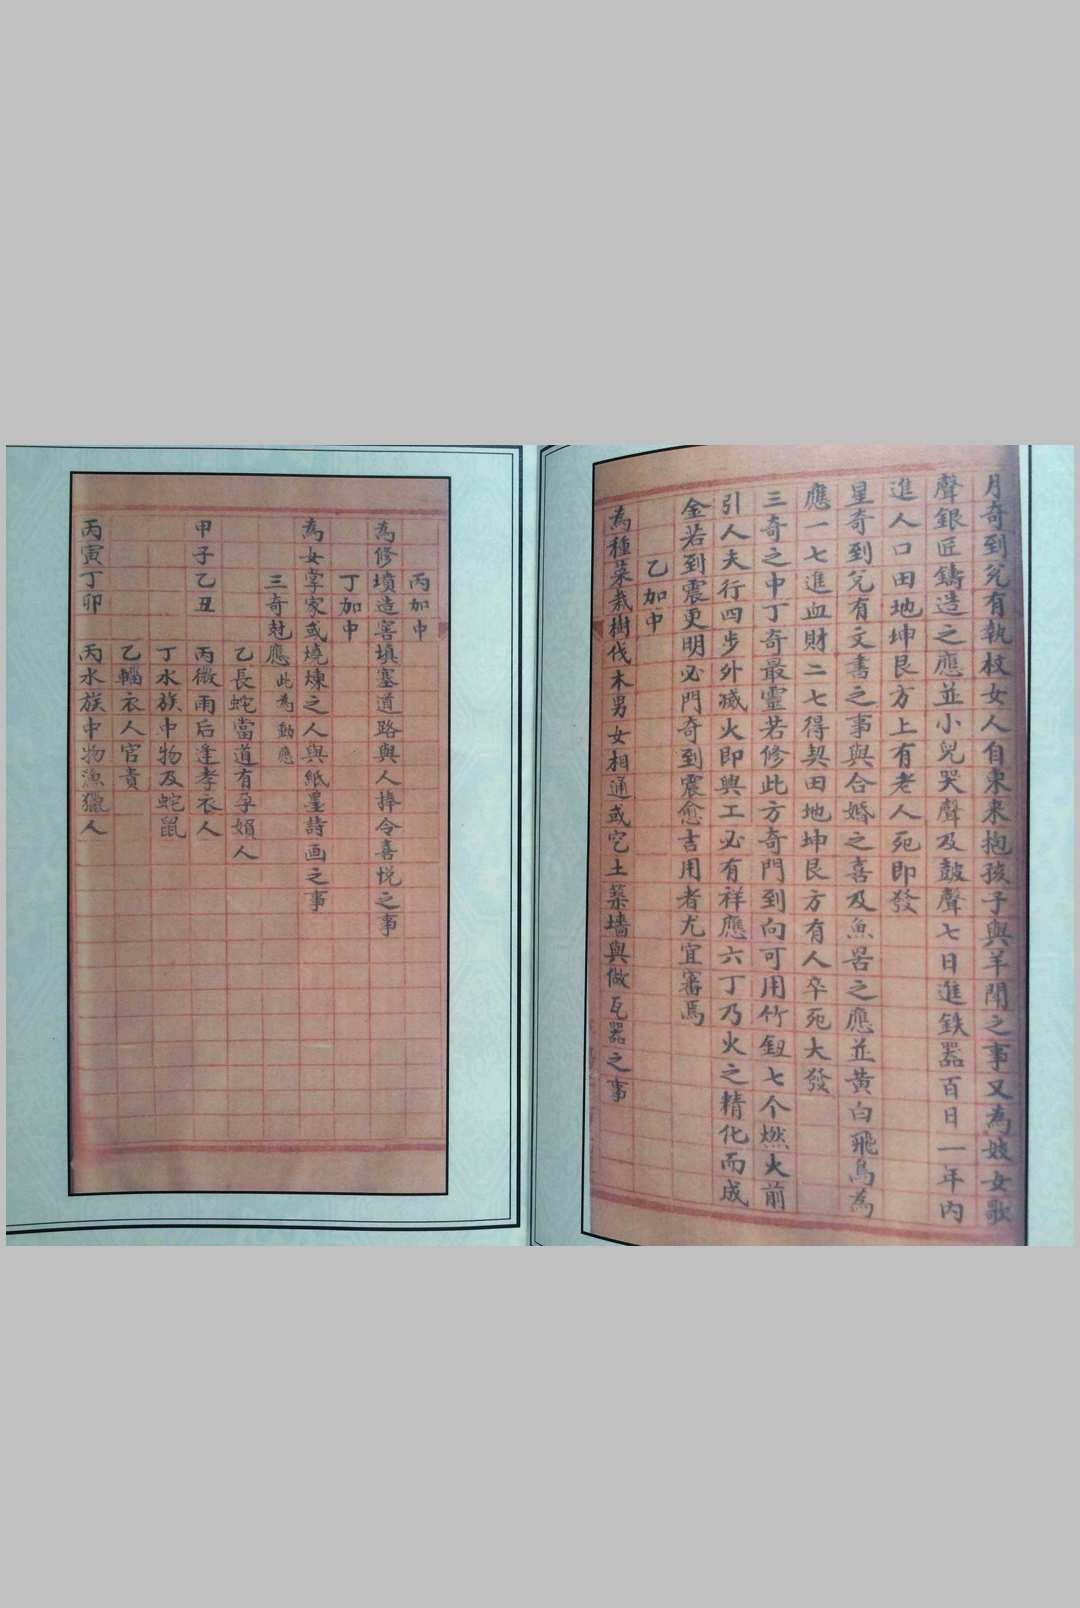 月奇到兌有執杖女人自東来抱孩子與羊鬧之事又為妓女歌
聲銀匠鑄造之應並小兒哭聲及鼓聲七日進鉄器百日一年内
進人口田地坤艮方上有老人死即發
星奇到兌有文書之事與合婚之喜及魚罟之應並黄白飛鳥為
應一七進血財二七得契田地坤艮方有人卒死大發
三奇之中丁奇最靈若修此方奇門到向可用竹釵七个燃火前
引人夫行四步外滅火即興工必有祥應六丁乃火之精化而成
金若到震更明必門奇到震愈吉用者尤宜審焉
乙加中
為種菜栽樹伐木男女相通或穵土築墻與做瓦器之事
丙加中
為修墳造窖填塞道路與人捧令喜悦之事
丁加中
為女掌家或燒煉之人與紙墨詩画之事
三奇尅應此為動應
乙長蛇當道有孕娟人
甲子乙丑 丙微雨后逢孝衣人
丁水族中物及蛇鼠
乙衣人官貴
丙寅丁卯 丙水族中物漁獵人